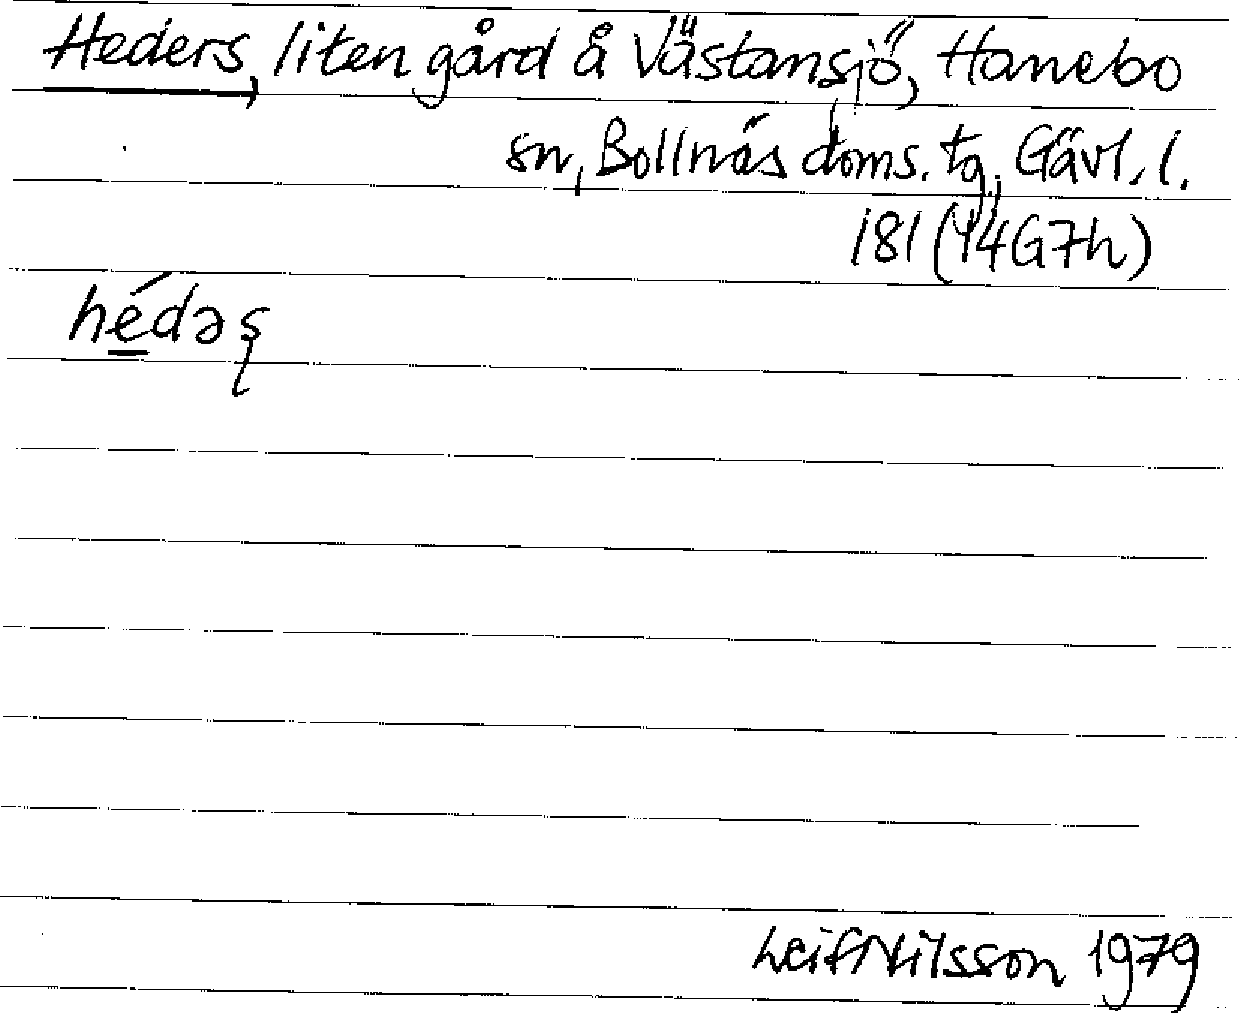 Heders, liten gård å Västansjö, Hanebo
sn, Bollnäs doms. tg. Gävl. l.
181 (14G7h)
hédəʂ
Leif Nilsson 1979